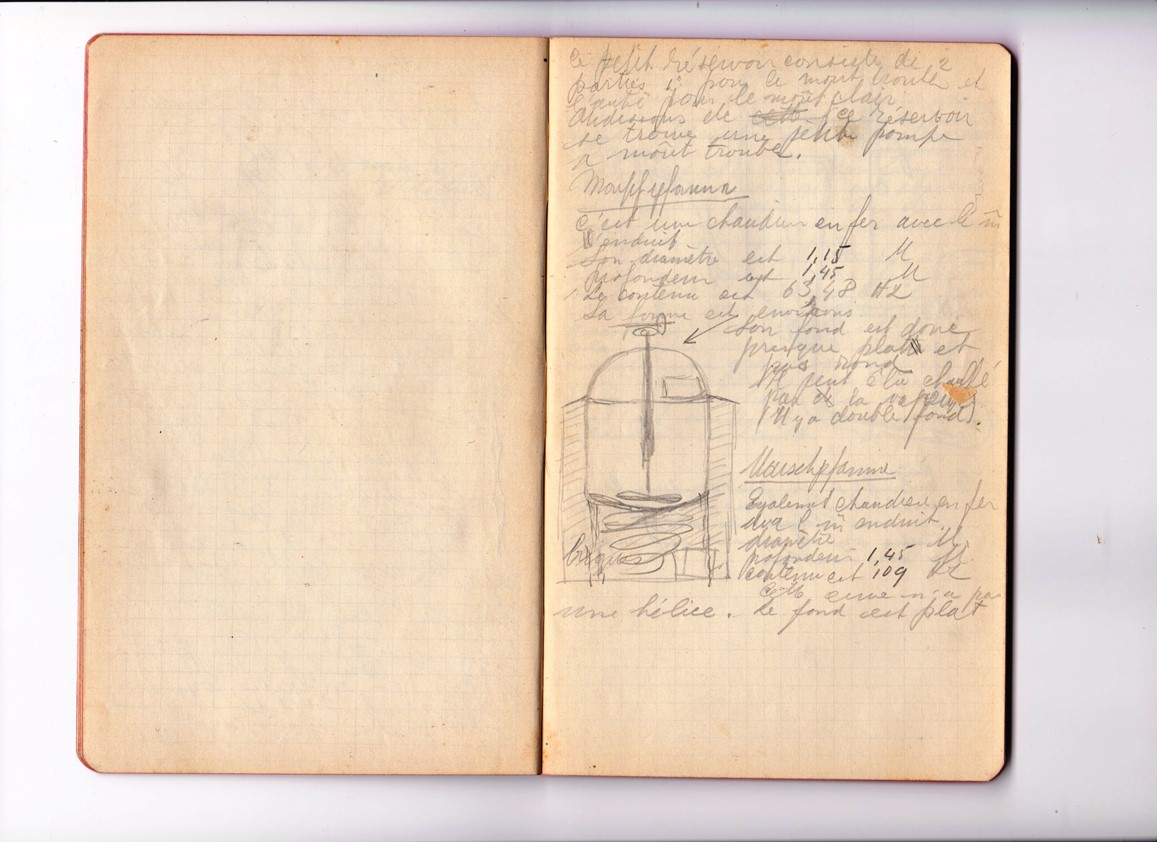 Ce petit réservoir consiste di 2
parties 1 pour le mout trouble et
l'autre pour le moût clair.
Audessous de cette ce réservoir
se trouve une petite pompe
a moût trouble.
c'est une chaudiere en fer avec
enduit
Son diamètre est 1,15 M
profondeur est 1,45 M
Le contenu est 63,48 HL
La forme est environs
Son fond est donc
presque plat et
pas rond
Il peut être chauffé
par la vapeur
(Il y a double fond).
Maischpfanne
Egalement chaudiere en fer
enduit.
diamètre M.
profondeur 1,45 M.
contenu est 109 HL
briques
Cette n'a pas
une hélice. Le fond est plat